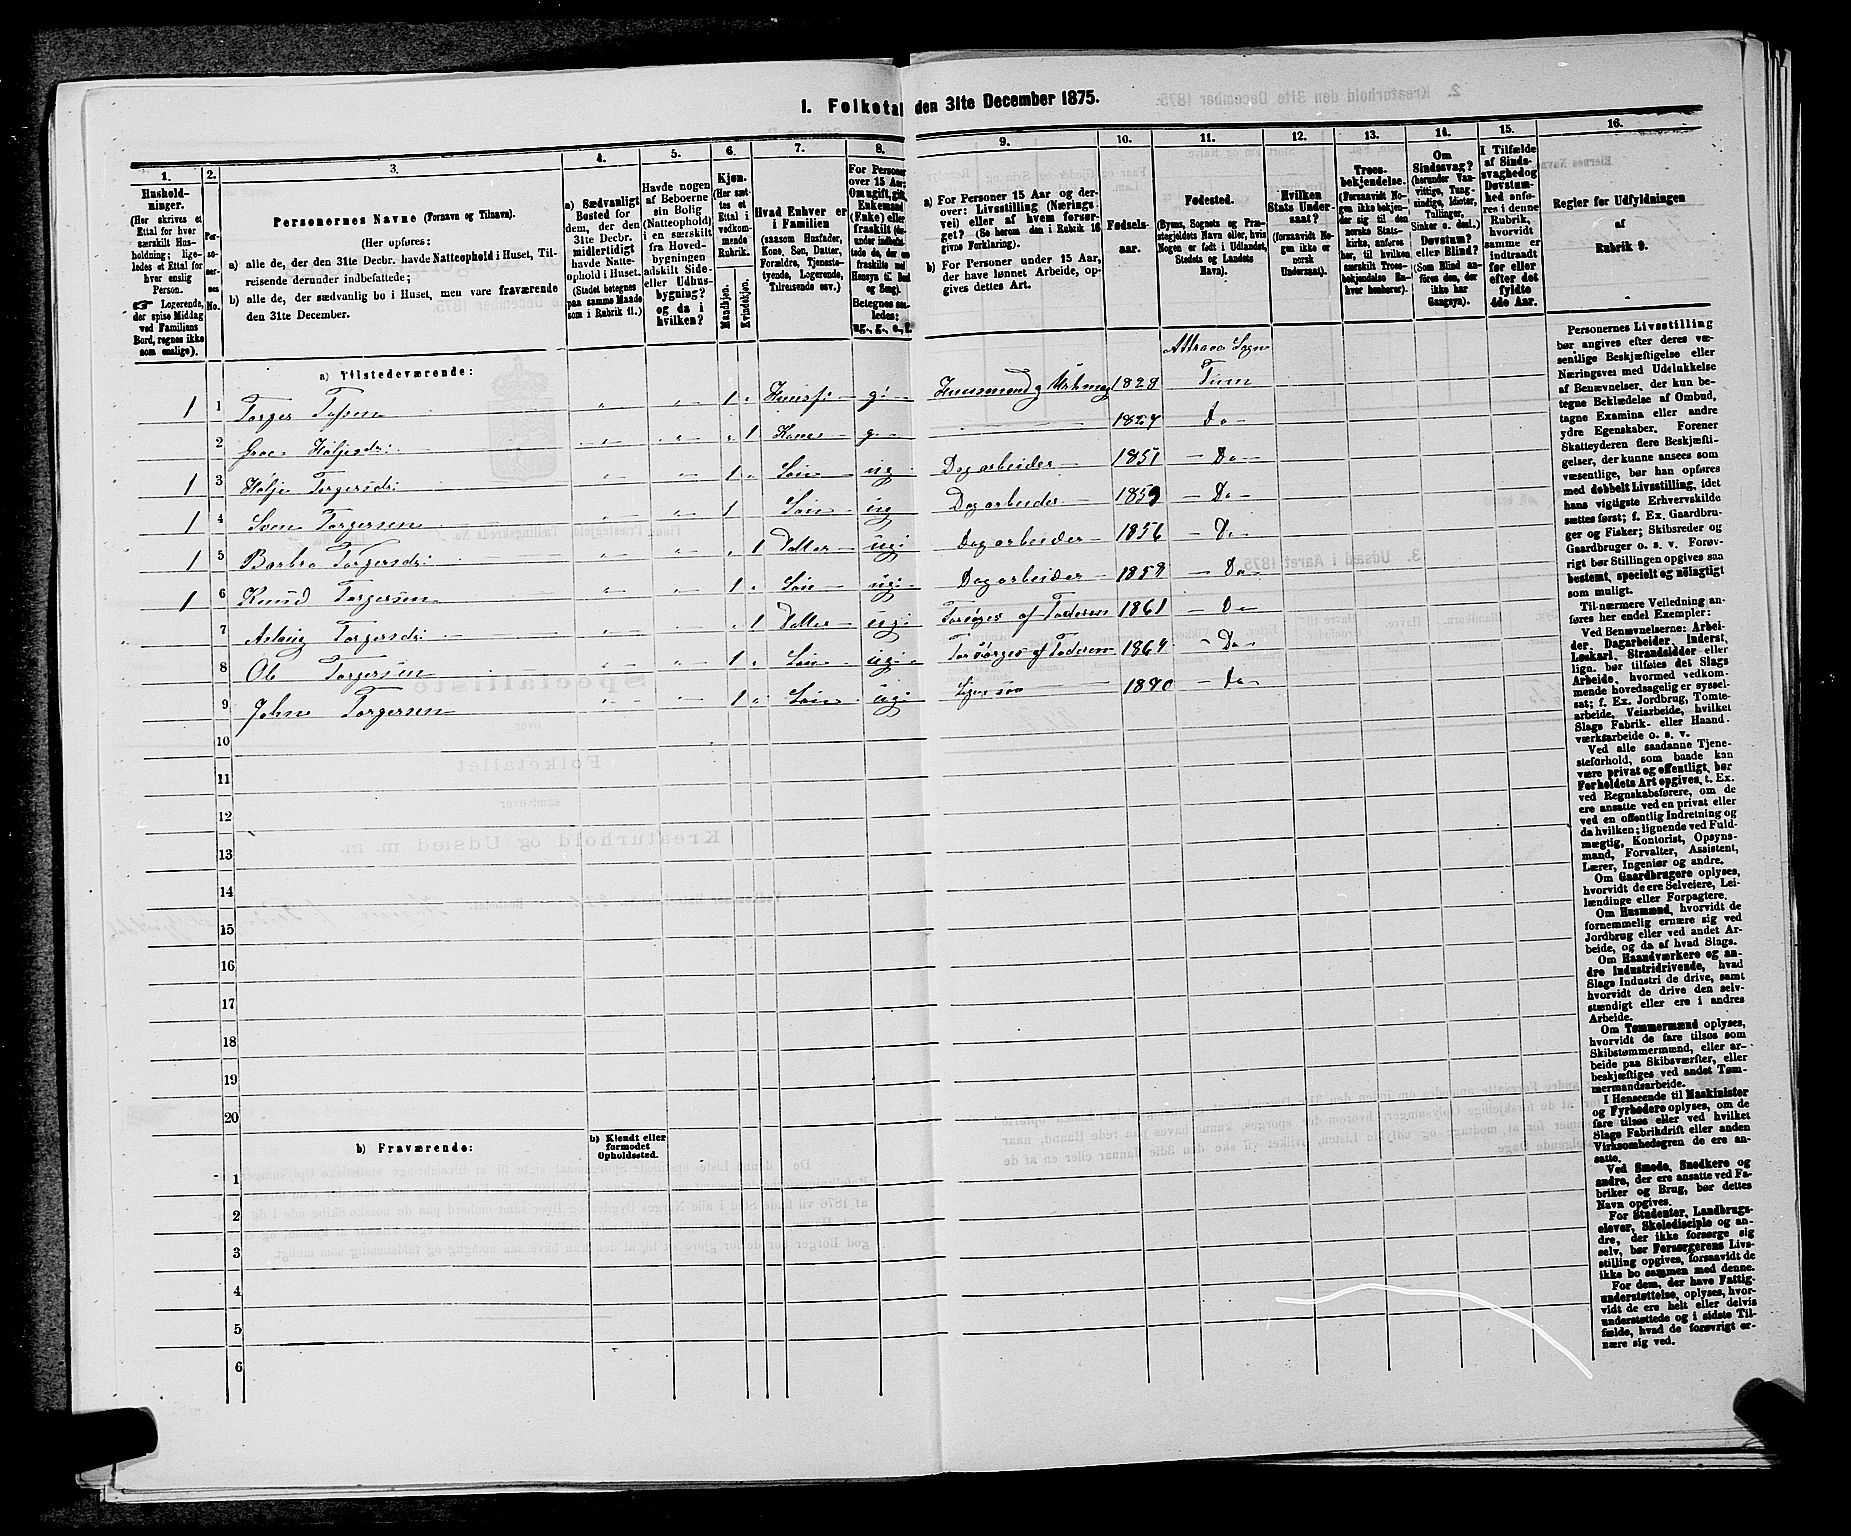 1. Folketal den 31te December 1875.
1.
Hushold-
ninger.
(Her skrives et
Ettal for hver
særskilt Hus-
holdning; lige-
ledes et Ettal for
hver enslig
Person.
☞ Logerende,
der spise Middag
ved Familiens
Bord, regnes ikke
som enslige).
2.
Per-
soner-
nes
No.
3.
Personernes Navne (Fornavn og Tilnavn).
(Her opføres:
a) alle de, der den 31te Decbr. havde Natteophold i Huset, Til-
reisende derunder indbefattede;
b) alle de, der sædvanlig bo i Huset, men vare fraværende
den 31te December.
4.
a) Sædvanligt
Bosted for
dem, der den
31te Decbr.
midlertidigt
havde Natte-
ophold i Huset.
(Stedet betegnes
paa samme Maade
som i Rubrik 11.)
5.
Havde nogen
af Beboerne
sin Bolig
(Natteophold)
i en særskilt
fra Hoved-
bygningen
adskilt Side-
eller Udhus-
bygning?
og da i
hvilken?
6.
Kjøn.
(Her sæt-
tes et
Ettal i
vedkom-
mende
Rubrik.
Mandkjøn.
Kvindekjøn.
7.
Hvad Enhver er
i Familien
(saasom Husfader,
Kone, Søn, Datter,
Forældre, Tjeneste-
tyende, Logerende,
Tilreisende osv.)
8.
For Personer
over 15 Aar:
Om ugift, gift,
Enkemand
(Enke) eller
fraskilt
Betegnes saa-
ledes:
ug., g., e., f.
9.
a) For Personer 15 Aar og der-
over: Livsstilling (Nærings-
vei) eller af hvem forsør-
get? (Se herom den i Rubrik 16
givne Forklaring).
b) For Personer under 15 Aar,
der have lønnet Arbeide, op-
gives dettes Art.
10.
Fødsels-
aar.
11.
Fødested.
(Byens, Sognets og Præ-
stegjeldets Navn eller, hvis
Nogen er født i Udlandet,
Stedets og Landets
Navn).
12.
Hvilken
Stats Under-
saat?
(forsaavidt No-
gen ikke er
norsk
Undersaat).
13.
Troes-
bekjendelse.
(Forsaavidt No-
gen ikke beken-
der sig til den
norske Stats-
kirke, anføres
her, til hvilken
særskilt Troes-
bekjendelse En-
hver henhører).
14.
Om
Sindssvag?
(herunder Van-
vittige, Tung-
sindige, Idioter,
Tullinger,
Sinker o. desl.)
Døvstum?
eller Blind?
(Som Blind an-
føres den, der
ikke har
Gangsyn).
15.
I Tilfælde
af Sinds-
svaghed og
Døvstum-
hed, an-
føres i denne
Rubrik,
hvorvidt
samme er
indtraadt
før eller
efter det
fyldte
4de Aar.
16.
Regler for Udfyldningen
af
Rubrik 9.
a) Tilstedeværende:
Attraae Sogn
1 1 Torger „ „ 1 „ Husf. g. Huusmand 1828 Tinn
2 Groe „ „ „ 1 Kone g. 1827 Do
1 3 Hølje Torgersdr: „ „ 1 „ Søn ug Dagarbeider 1851 Do
1 4 Sven Torgersen „ „ 1 Søn ug Dagarbeider 1853 Do
1 5 Barbro Torgersdr: „ „ „ 1 Datter ug: Dagarbeider 1856 Do
1 6 Knud Torgersen „ „ 1 „ Søn ug: Dagarbeider 1858 Do
7 Aslaug Torgersdr: „ „ „ 1 Datter ug: Forsørges af Faderen 1861 Do
8 Ole Torgersen „ „ 1 „ Søn ug: Forsørges af Faderen 1864 Do
9 John Torgersen „ „ 1 „ Søn ug: Ligesaa 1870 Do
10
11
12
13
14
15
16
17
18
19
20
b) Fraværende:
b) Kjendt eller
formodet
Opholdssted.
1
2
3
4
5
6
Personernes Livsstilling
bør angives efter deres væ-
sentlige Beskjæftigelse eller
Næringsvei med Udelukkelse
af Benævnelser, der kun be-
tegne Beklædelse af Ombud,
tagne Examina eller andre
ydre Egenskaber. Forener
Skatteyderen flere Beskjæfti-
gelser, der kunne ansees som
væsentlige, bør han opføres
med dobbelt Livsstilling, idet
hans vigtigste Erhvervskilde
sættes først; f. Ex. Gaardbru-
ger og Fisker; Skibsreder og
Gaardbruger o. s. v. Forøv-
rigt bør Stillingen opgives saa
bestemt, specielt og nøiagtigt
som muligt.
Til nærmere Veiledning an-
føres her endel Exempler:
Ved Benævnelserne: Arbei-
der, Dagarbeider, Inderst,
Løskarl, Strandsidder eller
lign. bør tilføies det Slags
Arbeide, hvormed vedkom-
mende hovedsagelig er syssel-
sat; f. Ex. Jordbrug, Tomte-
arbeide, Veiarbeide, hvilket
Slags Fabrik- eller Haand-
værksarbeide o. s. v.
Ved alle saadanne Tjene-
steforhold, som baade kan
være privat og offentligt, bør
Forholdets Art opgives, t. Ex.
ved Regnskabsførere, om de
ere ansatte ved en privat eller
ved en offentlig Indretning og
da hvilken; lignende ved Fuld-
mægtig, Kontorist, Opsyns-
mand, Forvalter, Assistent,
Lærer, Ingeniør og andre.
Om Gaardbrugere oplyses,
hvorvidt de ere Selveiere, Lei-
lændinge eller Forpagtere.
Om Husmænd, hvorvidt de
fornemmelig ernære sig ved
Jordbrug eller ved andet Ar-
beide, og da af hvad Slags.
Om Haandværkere og an-
dre Industridrivende, hvad
Slags Industri de drive, samt
hvorvidt de drive den selv-
stændigt eller ere i andres
Arbeide.
Om Tømmermænd oplyses,
hvorvidt de fare tilsøs som
Skibstømmermænd, eller ar-
beide paa Skibsværfter, eller
beskjæftiges ved andet Tøm-
mermandsarbeide.
I Henseende til Maskinister
og Fyrbødere oplyses, om de
fare tilsøs eller ved hvilket
Slags Fabrikdrift eller anden
Virksomhedsgren de ere an-
satte.
Ved Smede, Snedkere og
andre, der ere ansatte ved Fa-
briker og Brug, bør dettes
Navn opgives.
For Studenter, Landbrugs-
elever, Skoledisciple og an-
dre, der ikke forsørge sig
selv, bør Forsørgerens Livs-
stilling opgives, forsaavidt de
ikke bo sammen med denne.
For dem, der have Fattig-
understøttelse, oplyses, hvor-
vidt de ere helt eller delvis
understøttede og i sidste Til-
fælde, hvad de forøvrigt er-
nære sig ved.